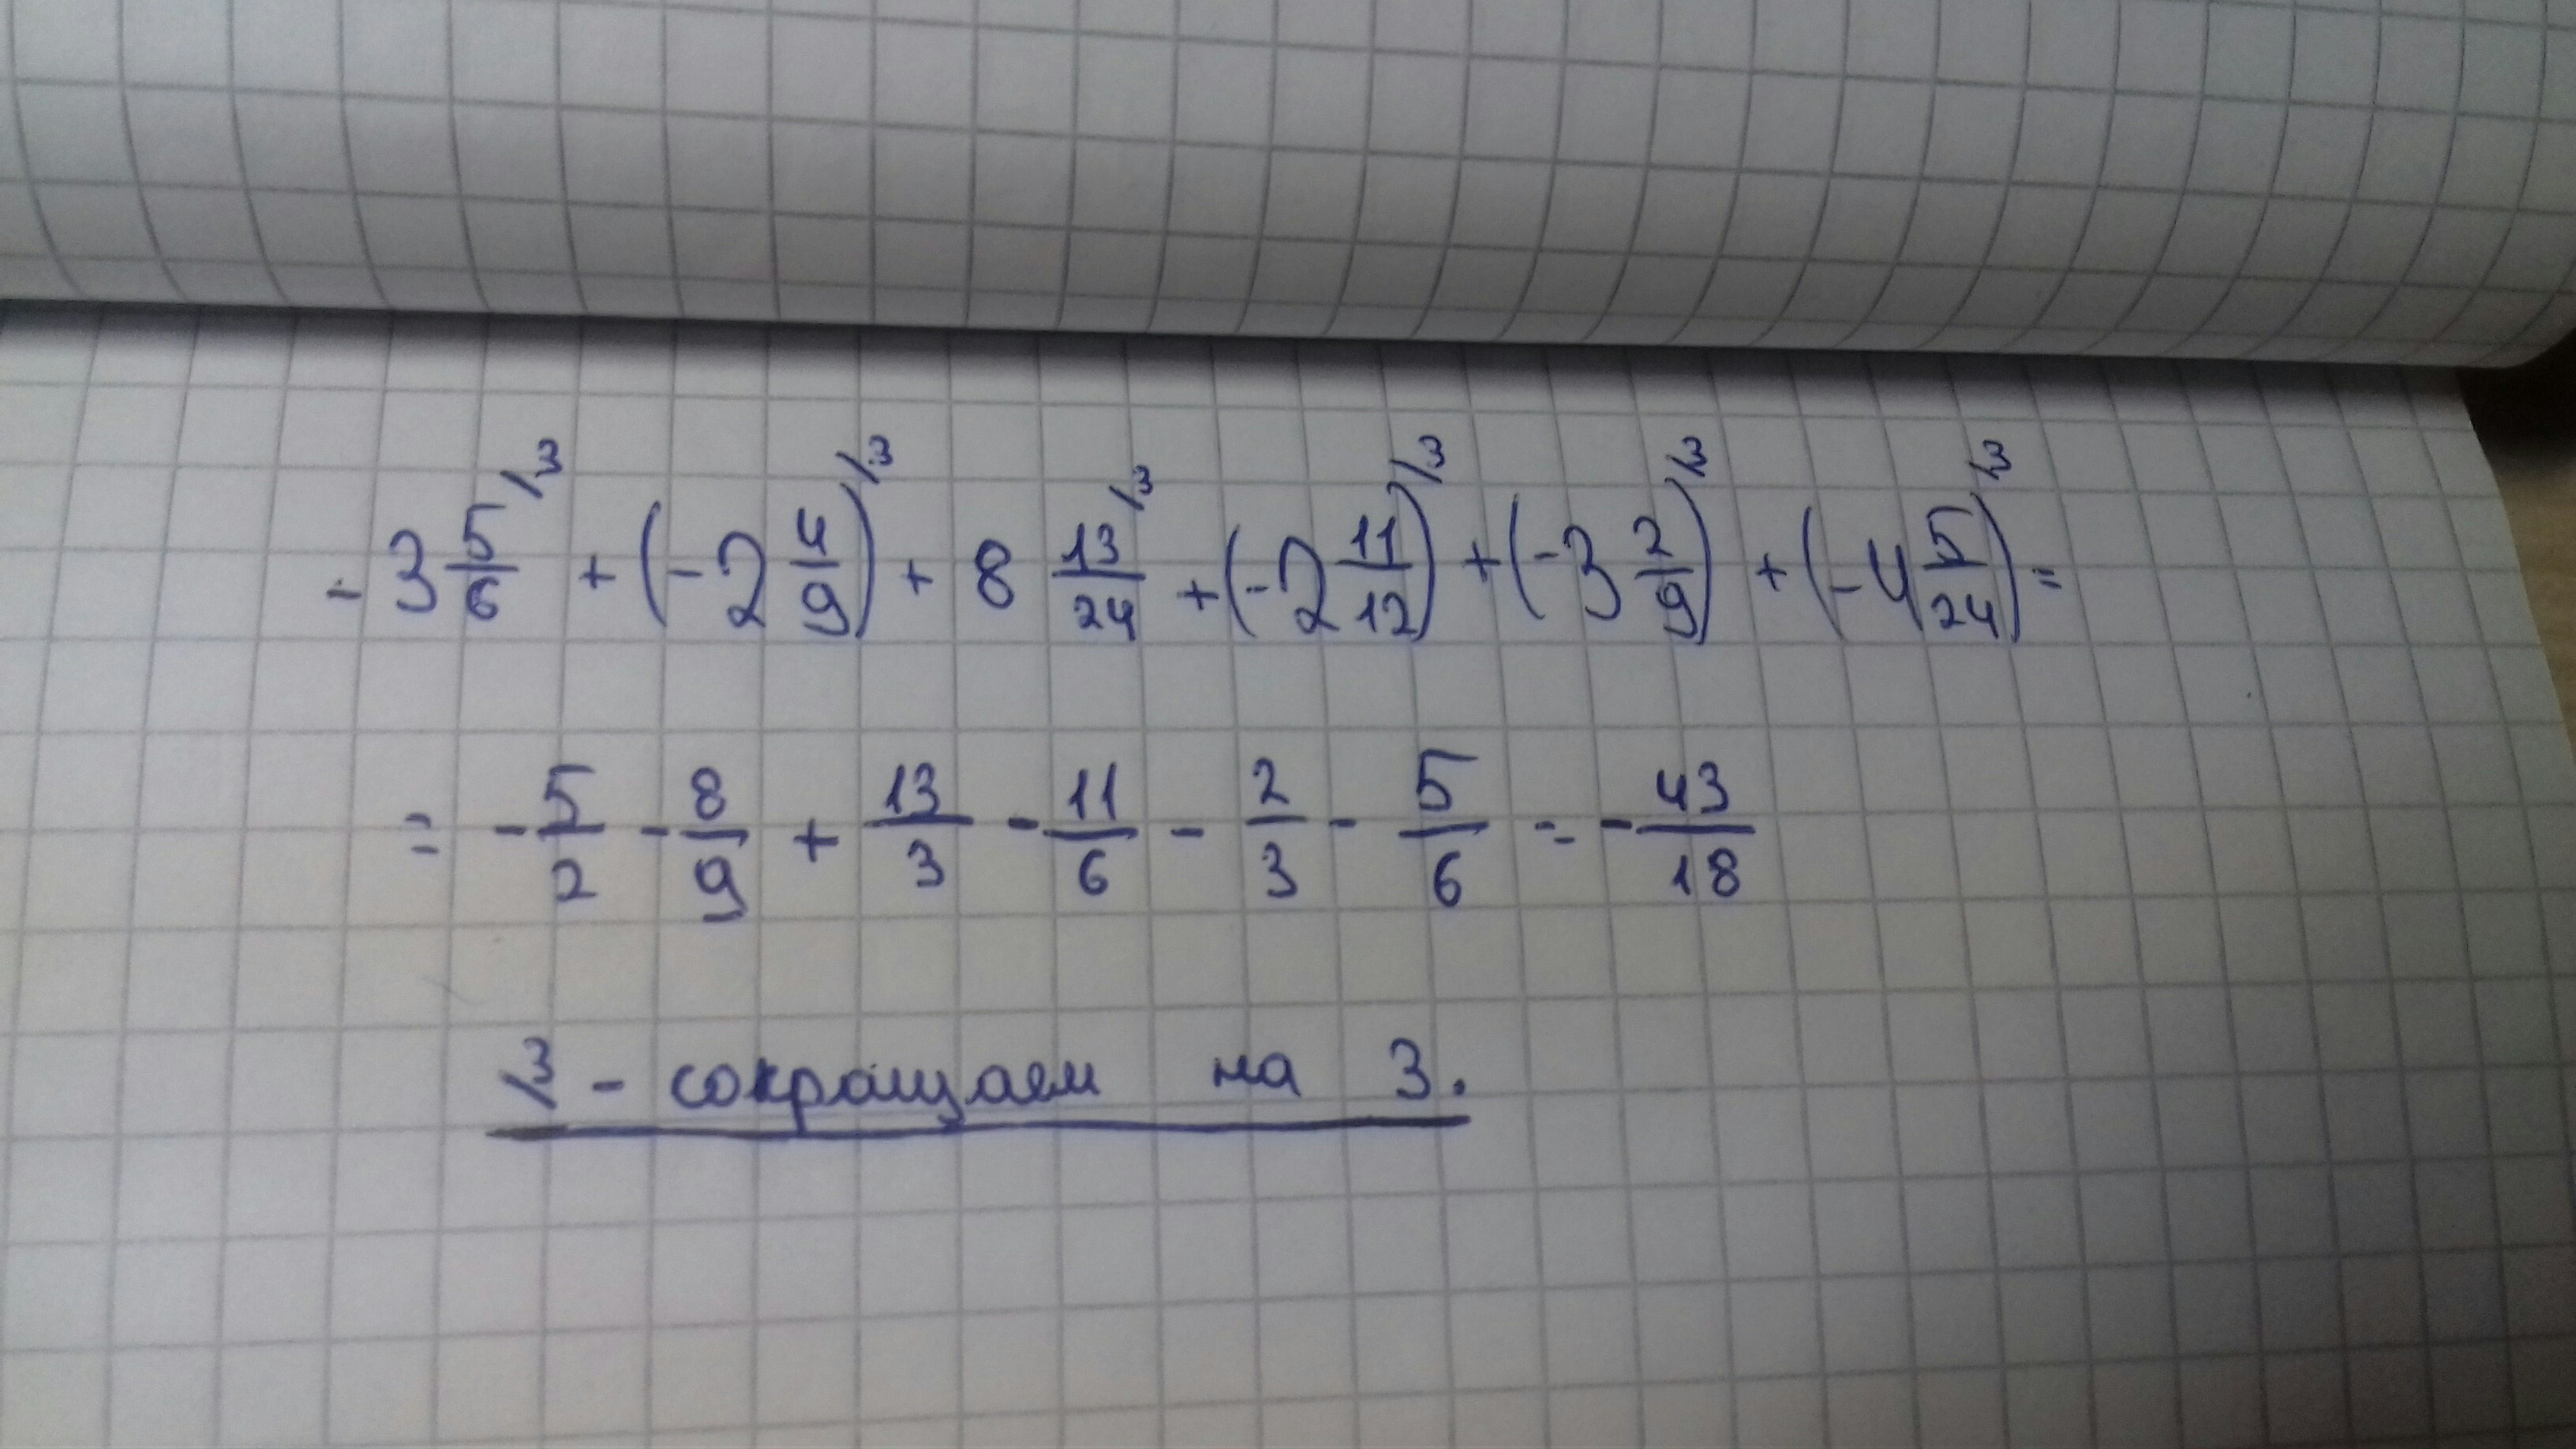 - 3 5/6 /3 + (-2 4/9) /3 + 8 13/24 /3 + (-2 11/12) /3 + (-3 2/9) /3 + (-4 5/24) /3 =
= - 5/2 - 8/9 + 13/3 - 11/6 - 2/3 - 5/6 = - 43/18
/3 - сокращаем на 3.